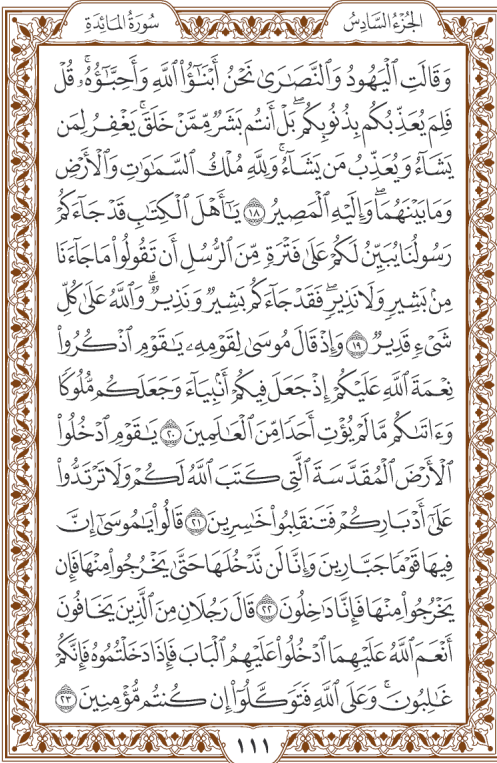 الجُزْءُ السَّادِسُ سُورَةُ المَائِدَةِ
وَقَالَتِ ٱلْيَهُودُ وَٱلنَّصَٰرَىٰ نَحْنُ أَبْنَٰٓؤُا۟ ٱللَّهِ وَأَحِبَّٰٓؤُهُۥۚ قُلْ
فَلِمَ يُعَذِّبُكُم بِذُنُوبِكُمۖ بَلْ أَنتُم بَشَرٌ مِّمَّنْ خَلَقَۚ يَغْفِرُ لِمَن
يَشَآءُ وَيُعَذِّبُ مَن يَشَآءُۚ وَلِلَّهِ مُلْكُ ٱلسَّمَٰوَٰتِ وَٱلْأَرْضِ
وَمَا بَيْنَهُمَاۖ وَإِلَيْهِ ٱلْمَصِيرُ ١٨ يَٰٓأَهْلَ ٱلْكِتَٰبِ قَدْ جَآءَكُمْ
رَسُولُنَا يُبَيِّنُ لَكُمْ عَلَىٰ فَتْرَةٍ مِّنَ ٱلرُّسُلِ أَن تَقُولُوا۟ مَا جَآءَنَا
مِنۢ بَشِيرٍ وَلَا نَذِيرٍۖ فَقَدْ جَآءَكُم بَشِيرٌ وَنَذِيرٌۗ وَٱللَّهُ عَلَىٰ كُلِّ
شَىْءٍ قَدِيرٌ ١٩ وَإِذْ قَالَ مُوسَىٰ لِقَوْمِهِۦ يَٰقَوْمِ ٱذْكُرُوا۟
نِعْمَةَ ٱللَّهِ عَلَيْكُمْ إِذْ جَعَلَ فِيكُمْ أَنۢبِيَآءَ وَجَعَلَكُم مُّلُوكًا
وَءَاتَىٰكُم مَّا لَمْ يُؤْتِ أَحَدًا مِّنَ ٱلْعَٰلَمِينَ ٢٠ يَٰقَوْمِ ٱدْخُلُوا۟
ٱلْأَرْضَ ٱلْمُقَدَّسَةَ ٱلَّتِى كَتَبَ ٱللَّهُ لَكُمْ وَلَا تَرْتَدُّوا۟
عَلَىٰٓ أَدْبَارِكُمْ فَتَنقَلِبُوا۟ خَٰسِرِينَ ٢١ قَالُوا۟ يَٰمُوسَىٰٓ إِنَّ
فِيهَا قَوْمًا جَبَّارِينَ وَإِنَّا لَن نَّدْخُلَهَا حَتَّىٰ يَخْرُجُوا۟ مِنْهَا فَإِن
يَخْرُجُوا۟ مِنْهَا فَإِنَّا دَٰخِلُونَ ٢٢ قَالَ رَجُلَانِ مِنَ ٱلَّذِينَ يَخَافُونَ
أَنْعَمَ ٱللَّهُ عَلَيْهِمَا ٱدْخُلُوا۟ عَلَيْهِمُ ٱلْبَابَ فَإِذَا دَخَلْتُمُوهُ فَإِنَّكُمْ
غَٰلِبُونَۚ وَعَلَى ٱللَّهِ فَتَوَكَّلُوٓا۟ إِن كُنتُم مُّؤْمِنِينَ ٢٣
١١١